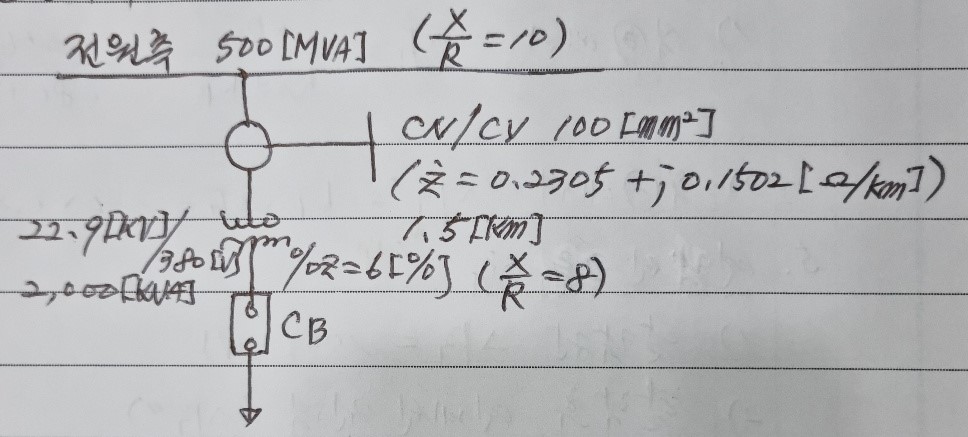 전원측 500[MVA] (X/R=10)
CN/CV 100[mm²]
(ż=0.2305+j0.1502[Ω/km])
1.5[km]
22.9[kV]/
/380[V] %z=6[%] (X/R=8)
2,000[kVA]
CB